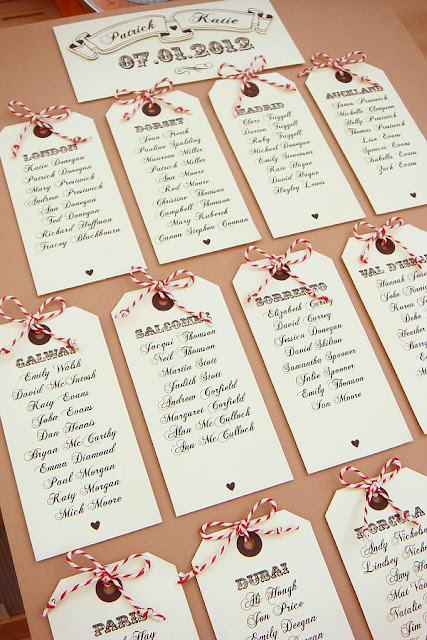 Patrick Katie
07.01.2012
LONDON
Katie Donegan
Patrick Donegan
Mary Prestwich
Andrew Prestwich
Ann Donegan
Ted Donegan
Richard Hoffman
Tracey Blackbourn
DORSET
Joan Freith
Pauline Spalding
Maureen Miller
Patrick Miller
Ann Moore
Rod Moore
Christine Thomson
Campbell Thomson
Mary Ruberch
Canon Stephen
MADRID
Clare Frizzell
Darren Frizzell
Ruby Frizzell
Michael Donegan
Emily Stevenson
Kate Hague
David Hague
Hayley Lewis
AUCKLAND
James Prestwich
Michelle Conway
Holly Prestwich
Thomas Prestwich
Lisa Evans
Spencer Evans
Isabella Evans
Jack Evans
GALWAY
Emily Walsh
David McIntosh
Katy Evans
John Evans
Dan Hennis
Bryan McCarthy
Emma Diamond
Paul Morgan
Katy Morgan
Mick Moore
SALCOMBE
Jacqui Thomson
Neil Thomson
Martin Stott
Judith Stott
Andrew Corfield
Margaret Corfield
Alan McCulloch
Ann McCulloch
SORRENTO
Elizabeth
David Currey
Jessica Donegan
David Shilton
Samantha Spooner
Julie Spooner
Emily Thomson
Ian Moore
VAL D'IS
Hannah
John
Karen
Baker
Deb
Heather
Barr
Emily
PARIS
Hay
DUBAI
Ali Hough
Jon Price
Emily Deegan
KORCULA
Andy Nichols
Lindsey Nichol
Amy
Mai
Natalie
Tim